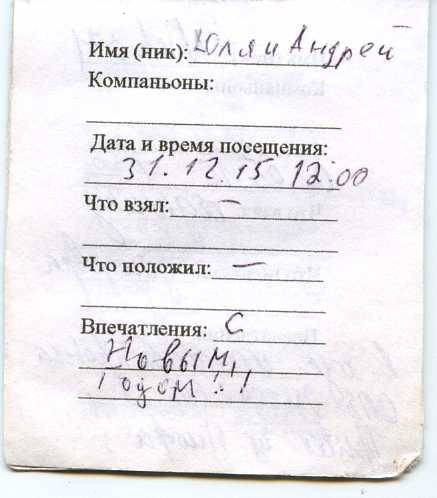 Имя (ник): Юля и Андрей
Компаньоны:
Дата и время посещения:
31.12.15 12:00
Что взял: –
Что положил: –
Впечатления: С
Новым
Годом!!